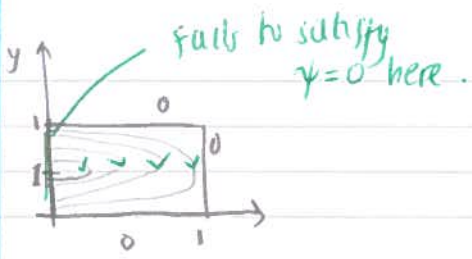 fails to satisfy
ψ=0 here.
y
0
1
0
1
0
1